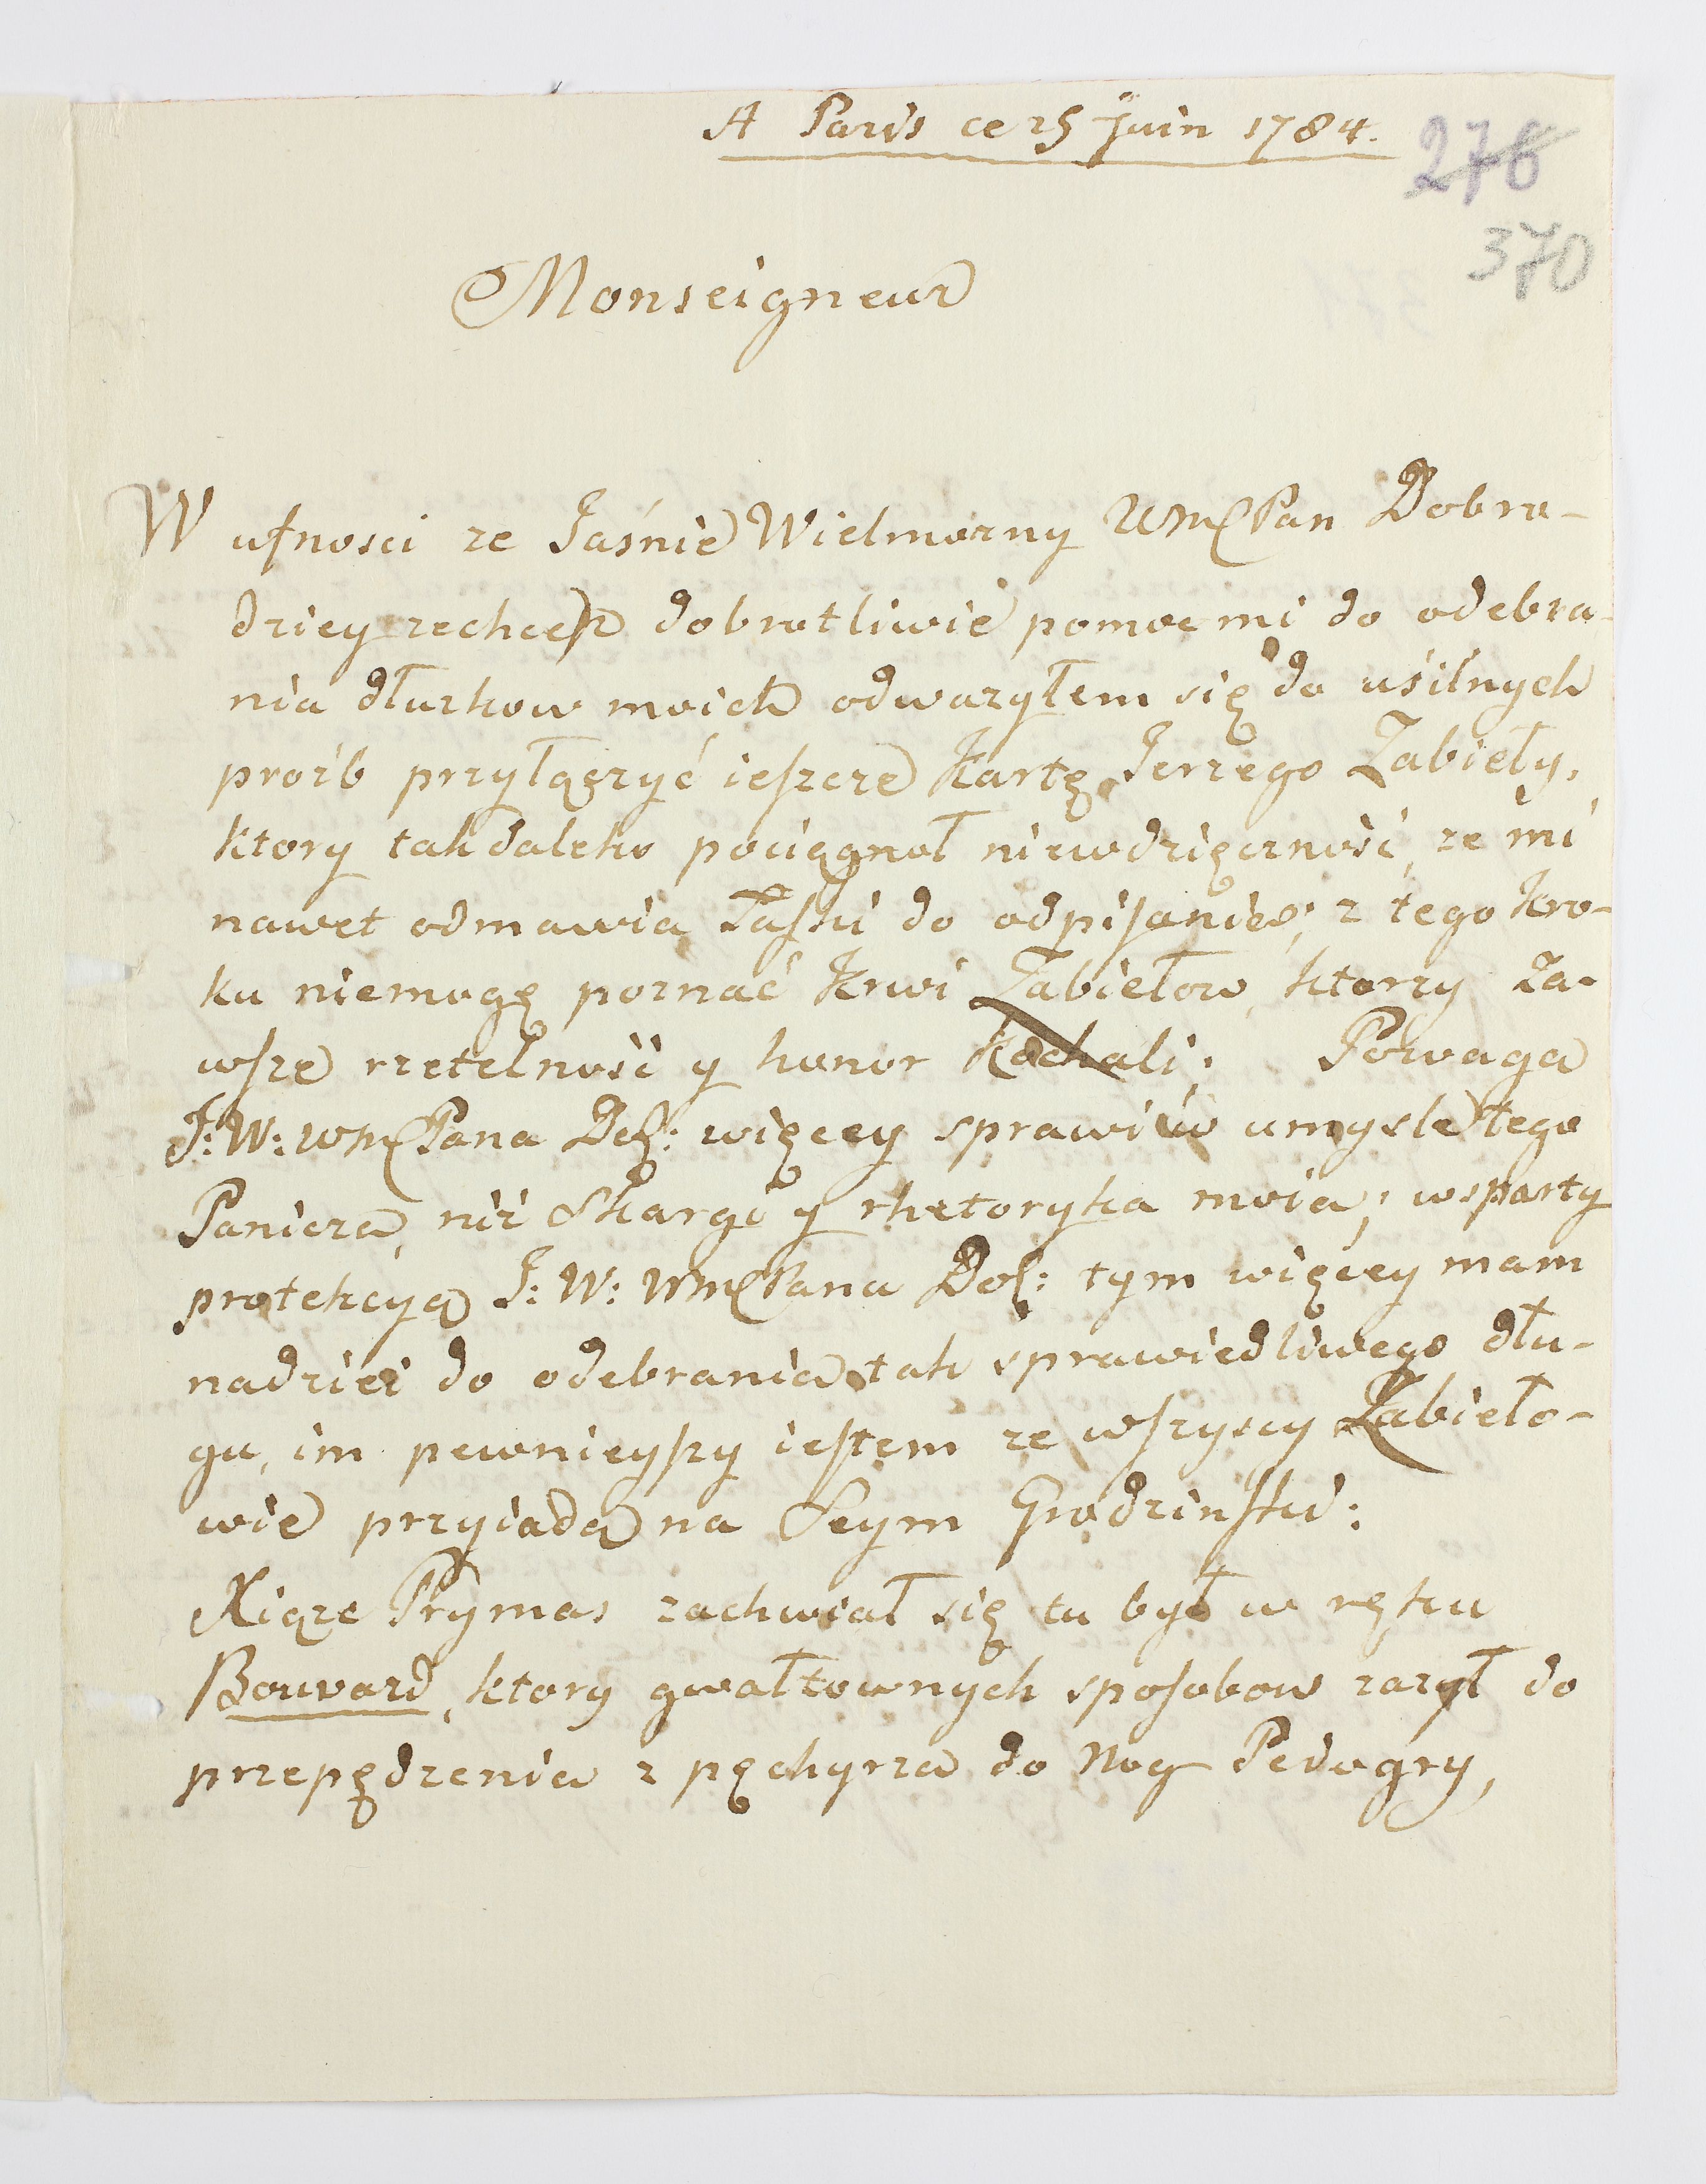 A Paris ce 25 Juin 1784.
278
370
Monseigneur
W ufnosci ze Jaśnie Wielmozny WMPan Dobro-
dziey zechcesz dobrotliwie pomoc mi do odebra-
nia dłuzkow moich odwazyłem się do uśilnych
proźb przyłączyć ieszcze Kartę Jerzego Zabieły,
ktory tak daleko pociągnoł niewdzięcznośc, ze mi
nawet odmawia Łaski do odpisanie; z tego kro-
ku niemogę poznać Krwi Zabiełow, ktorzy za-
wsze rzetelnośc y honor kochali; Powaga
J: W: WMPana Dob: więcey sprawi w umysle tego
Panicza, niż Skargi y rhetoryka moia; wsparty
protekcyą J: W: WMPana Dob: tym więcey mam
nadziei do odebrania tak sprawiedliwego dłu-
gu, im pewnieyszy iestem ze wszyscy Zabieło-
wie przyiadą na Seym Grodzinski:
Xiąze Prymas zachwiał się tu był w ręku
Bouvard, ktory gwałtownych sposobow zazył do
przepędzenia z pęchyrza do Nog Pedogry,